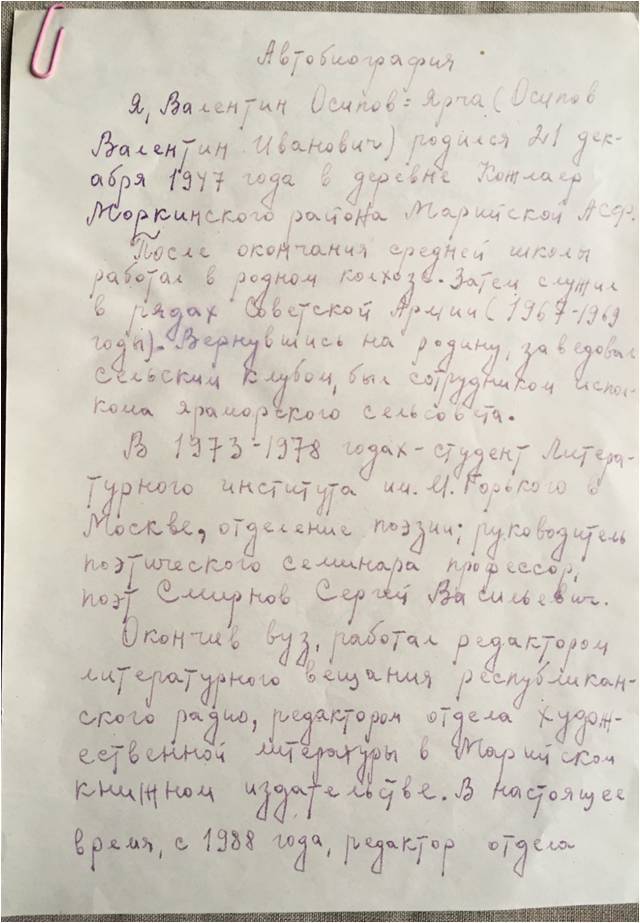 Автобиография
Я, Валентин Осипов-Ярча (Осипов
Валентин Иванович) родился 21 дек-
абря 1947 года в деревне Кожлаер
Моркинского района Марийской АССР.
После окончания средней школы
работал в родном колхозе. Затем служил
в рядах Советской Армии (1967-1969
годы). Вернувшись на родину, заведовал
сельским клубом, был сотрудником испол-
кома Яраморского сельсовета.
В 1973-1978 годах - студент Литера-
турного института им. М. Горького в
Москве, отделение поэзии; руководитель
поэтического семинара профессор,
поэт Смирнов Сергей Васильевич.
Окончив вуз, работал редактором
литературного вещания республикан-
ского радио, редактором отдела худож-
ественной литературы в Марийском
книжном издательстве. В настоящее
время, с 1988 года, редактор отдела